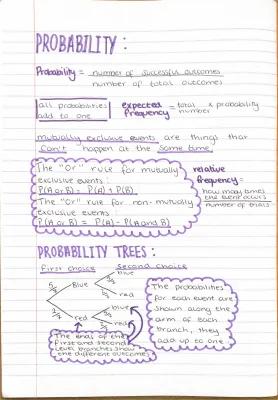 PROBABILITY :
Probability = number of successful outcomes
number of total outcomes
all probabilities
add to one
expected Frequency = total number x probability
mutually exclusive events are things that
can't happen at the same time.
The "Or" rule for mutually
exclusive events:
P(A or B) = P(A) + P(B).
The "Or" rule for non-mutually
exclusive events:
P(A or B) = P(A) - P(A and B)
relative
frequency =
how many times
the event occurs
number of trials
PROBABILITY TREES :
First choice Second choice
Blue
red
blue
red
blue
red
The ends of the
first and second
level branches show
the different outcomes
The probabilities
for each event are
shown along the
arm of each
branch, they
add up to one